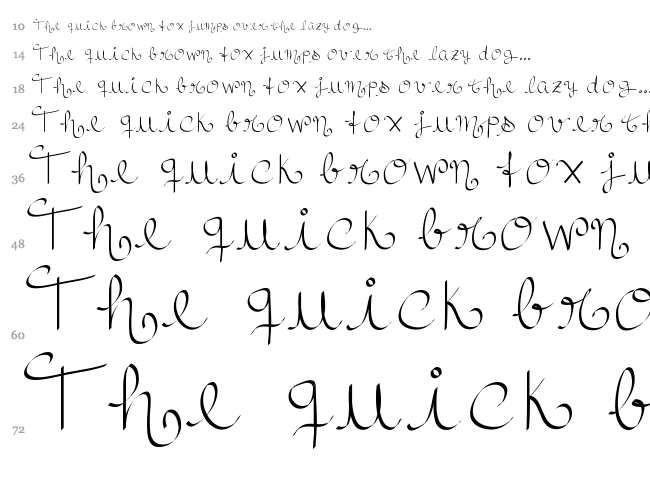 10 The quick brown fox jumps over the lazy dog...
14 The quick brown fox jumps over the lazy dog...
18 The quick brown fox jumps over the lazy dog...
24 The quick brown fox jumps over th
36 The quick brown fox ju
48 The quick brown
60 The quick bro
72 The quick b